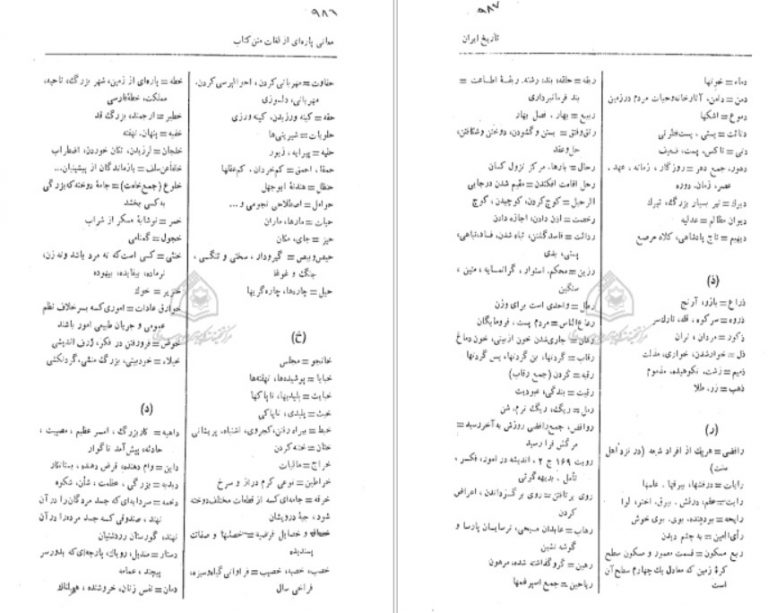 ۹۸۶
معانی پاره‌ای از لغات متن کتاب
حفاوت = مهربانی کردن، احوالپرسی کردن،
مهربانی، دلسوزی
حقد = کینه ورزیدن، کینه ورزی
حلویات = شیرینی‌ها
حلیه = پیرایه، زیور
حمقا، احمق = کم‌خردان، کم‌عقلها
حنظل = هندوانهٔ ابوجهل
حوامل = اصطلاحی نجومی و...
حیات = مارها، ماران
حیز = جای، مکان
حیص و بیص = گیرودار، سختی و تنگی،
جنگ و غوغا
حیل = چاره‌ها، چاره‌گریها
(خ)
خانجو = مجلس
خبایا = پوشیده‌ها، نهفته‌ها
خبایث = پلیدیها، ناپاکها
خبث = پلیدی، ناپاکی
خبط = بیراه رفتن، کجروی، اشتباه، پریشانی
ختان = ختنه کردن
خراج = مالیات
خراطین = نوعی کرم دراز و سرخ
خرقه = جامه‌ای که از قطعات مختلف دوخته
شود، جبهٔ درویشان
و خصایل فرضیه = خصلتها و صفات
پسندیده
خصب، خصب، خصیب = فراوانی گیاه و سبزه،
فراخی سال
خطه = پاره‌ای از زمین، شهر بزرگ، ناحیه،
مملکت، خطهٔ فارسی
خطیر = ارجمند، بزرگ قد
خفیه = پنهان، نهفته
خلجان = لرزیدن، تکان خوردن، اضطراب
خلفاً عن سلف = بازماندگان از پیشینیان...
خلوع (جمع خلعت) = جامهٔ دوخته که بزرگی
به کسی بخشد
خمر = نوشابهٔ مسکر از شراب
خمول = گمنامی
خنثی = کسی است که نه مرد باشد و نه زن،
نرماده، بیفایده، بیهوده
خنزیر = خوک
خوارق عادات = اموری که بر خلاف نظم
عمومی و جریان طبیعی امور باشند
خوض = فرورفتن در فکر، ژرف اندیشی
خیلاء = خودبینی، بزرگ منشی، گردنکشی
(د)
داهیه = کار بزرگ، امر عظیم، مصیبت،
حادثه، پیش‌آمد ناگوار
داین = وام دهنده، قرض دهنده، بستانکار
دبدبه = بزرگی، عظمت، شأن، شکوه
دخمه = سردابه‌ای که جسد مردگان را در آن
نهند، صندوقی که جسد مرده را در آن
نهند، گورستان زردشتیان
دستار = مندیل، روپاک، پارچه‌ای که به دور سر
پیچند، عمامه
دمان = نفس زنان، خروشنده،
۹۸۷
تاریخ ایران
دماء = خونها
دمن = دامن، آثار خانه و حیات مردم در زمین
دموع = اشکها
دنائت = پستی، پست‌فطرتی
دنی = ناکس، پست، ضعیف
دهور، جمع دهر = روزگار، زمانه، عهد،
عصر، زمان، دوره
دیرک = تیر بسیار بزرگ، تیرک
دیوان مظالم = عدلیه
دیهیم = تاج پادشاهی، کلاه مرصع
(ذ)
ذراع = بازو، آرنج
ذروه = سرکوه، قله، تارک سر
ذکور = مردان، نران
ذل = خوار شدن، خواری، مذلت
ذمیم = زشت، نکوهیده، مذموم
ذهب = زر، طلا
(ر)
رافضی = هریک از افراد شیعه (در نزد اهل
سنت)
رایات = درفشها، بیرقها، علمها
رایت = علم، درفش، بیرق، اختر، لوا
رایحه = بو دهنده، بوی، بوی خوش
رأی‌العین = به چشم دیدن
ربع مسکون = قسمت معمور و مسکون سطح
کرهٔ زمین که معادل یک چهارم سطح آن
است
ربقه = حلقه، بند، رشته، ربقهٔ اطاعت =
بند فرمانبرداری
ربیع = بهار، فصل بهار
رتق و فتق = بستن و گشودن، دوختن و شکافتن،
حل و عقد
رحال = بارها، مرکز نزول کسان
رحل اقامت افکندن = مقیم شدن در جایی
الرحیل = کوچ کردن، کوچیدن، کوچ
رخصت = اذن دادن، اجازه دادن
ردائت = فاسد گشتن، تباه شدن، فساد، تباهی،
پستی، بدی
رزین = محکم، استوار، گرانسایه، متین،
سنگین
رطل = واحدی است برای وزن
رعاع‌الناس = مردم پست، فرومایگان
رعاف = جاری شدن خون از بینی، خون دماغ
رقاب = گردنها، بن گردنها، پس گردنها
رقبه = گردن (جمع رقاب)
رقیت = بندگی، عبودیت
رمل = ریگ، ریگ نرم، شن
روافض، جمع رافضی روزش به آخر رسید =
مرگش فرا رسید
رویت ۱۶۹ ج ۲، اندیشه در امور، فکر،
تأمل، بدیهه‌گوئی
روی برتافتن = روی برگرداندن، اعراض
کردن
رهاب = عابدان مسیحی، ترسایان پارسا و
گوشه نشین
رهین = گرو گذاشته شده، مرهون
ریاحین = جمع اسپرغمها